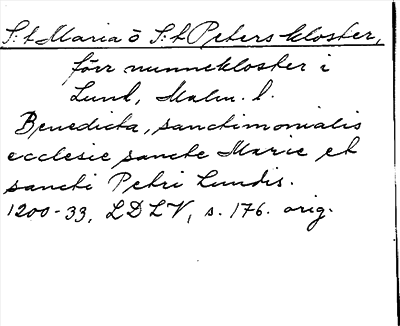 S:t Maria o S:t Peters kloster,
förr nunnekloster i
Lund, Malm. l.
Benedicta, sanctimonialis
ecclesie sancte Marie et
sancti Petri Lundis.
1200-33, LDLV, s. 176. orig.